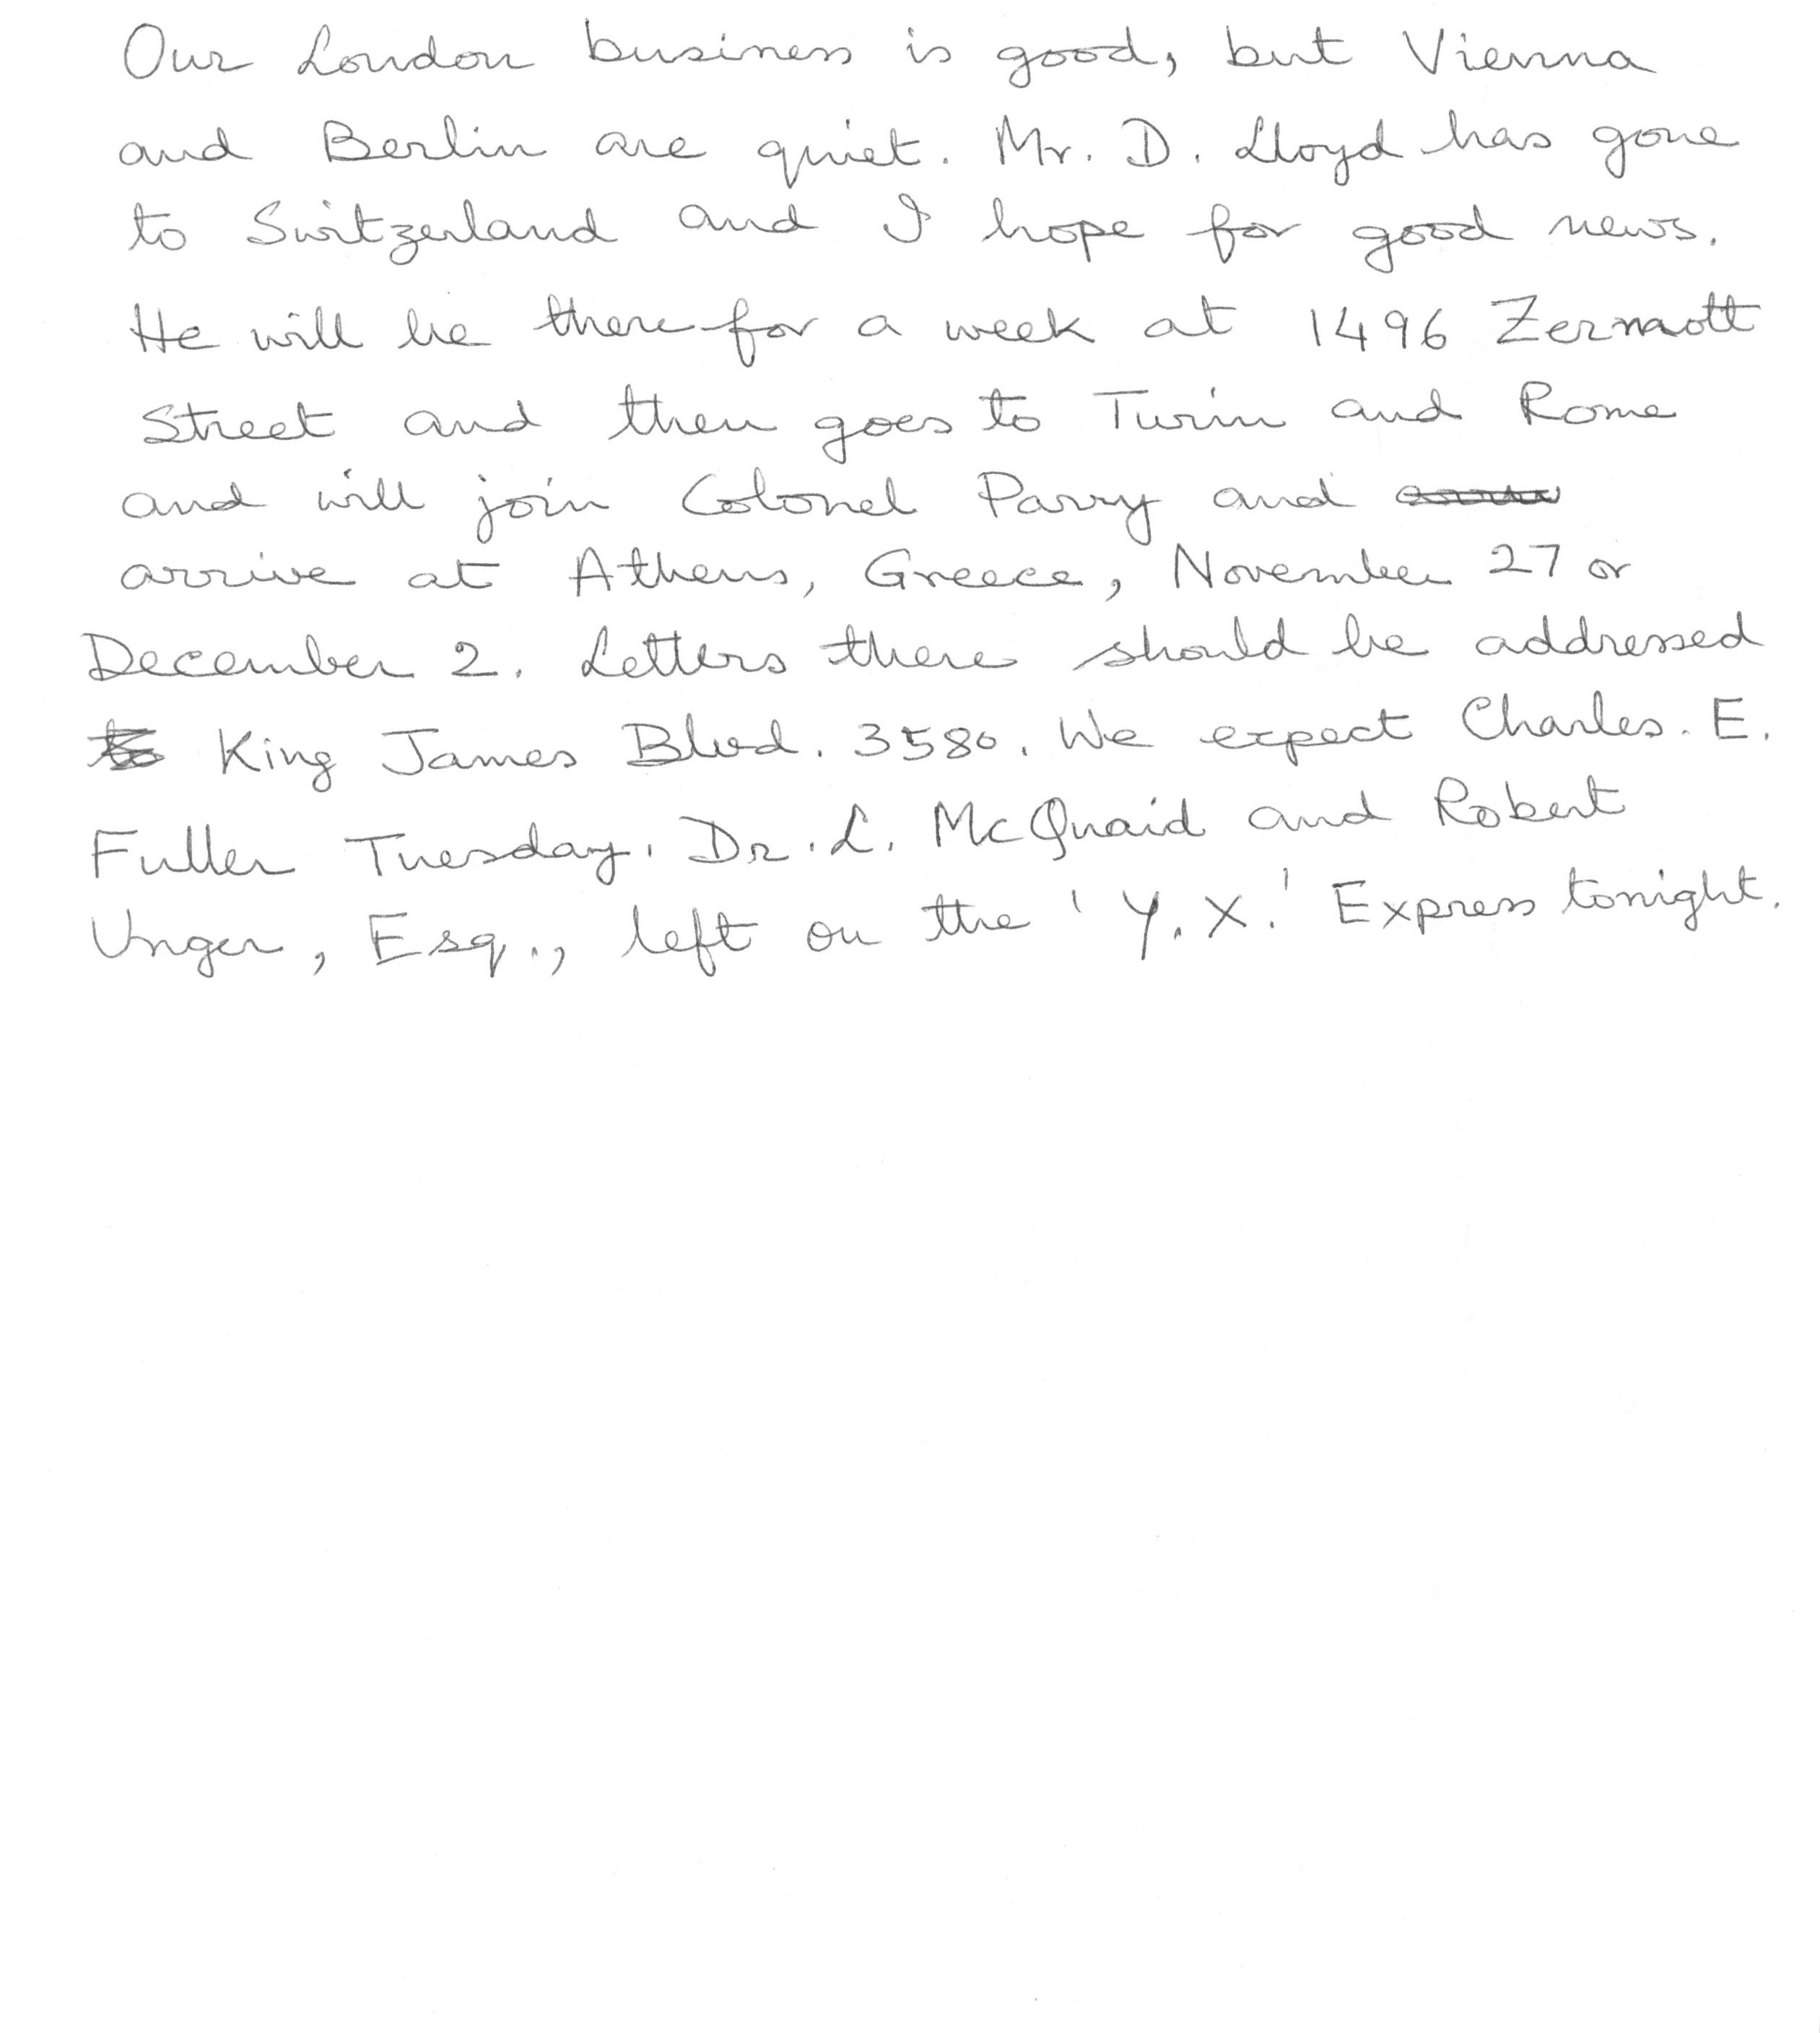 Our London business is good, but Vienna
and Berlin are quiet. Mr. D. Lloyd has gone
to Switzerland and I hope for good news.
He will be there for a week at 1496 Zermott
Street and then goes to Turin and Rome
and will join Colonel Parry and
arrive at Athens, Greece, November 27 or
December 2. Letters there should be addressed
to King James Blvd. 3580. We expect Charles. E.
Fuller Tuesday. Dr. L. McQuaid and Robert
Unger, Esq., left on the 'Y.X.' Express tonight.